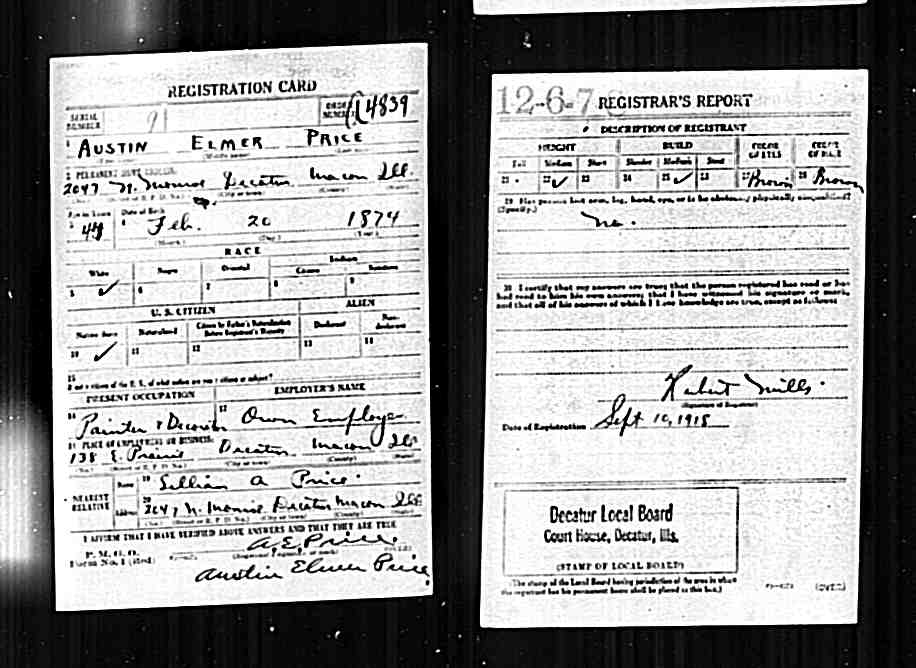 REGISTRATION CARD
SERIAL NUMBER 9 ORDER NUMBER 4839
1 AUSTIN ELMER PRICE
2 PERMANENT HOME ADDRESS:
2047 N. Monroe Decatur Macon Ill.
Age in Years Date of Birth
3 44 4 Feb. 20 1874
(Month.) (Day.) (Year.)
RACE
White Negro Oriental Indian
Citizen Noncitizen
5 ✓ 6 7 8 9
U. S. CITIZEN ALIEN
Native Born Naturalized Citizen by Father's Naturalization Before Registrant's Majority Declarant Non-declarant
10 ✓ 11 12 13 14
15
If not a citizen of the U. S., of what nation are you a citizen or subject?
PRESENT OCCUPATION EMPLOYER'S NAME
16 Painter & Decorator 17 Own Employer
18 PLACE OF EMPLOYMENT OR BUSINESS:
138 E. Prairie Decatur Macon Ill
(No.) (Street or R. F. D. No.) (City or town) (County) (State)
NEAREST RELATIVE
Name 19 Lillian A Price
Address 20 2047 N. Monroe Decatur Macon Ill
(No.) (Street or R. F. D. No.) (City or town) (County) (State)
I AFFIRM THAT I HAVE VERIFIED ABOVE ANSWERS AND THAT THEY ARE TRUE
P. M. G. O.
Form No. 1 (Red)
A. E. Price.
(Registrant's signature or mark) (OVER)
Austin Elmer Price
12-6-7 REGISTRAR'S REPORT
DESCRIPTION OF REGISTRANT
HEIGHT BUILD COLOR OF EYES COLOR OF HAIR
Tall Medium Short Slender Medium Stout
21 22 ✓ 23 24 25 ✓ 26 27 Brown 28 Brown
29 Has person lost arm, leg, hand, eye, or is he obviously physically disqualified?
(Specify.)
no.
30 I certify that my answers are true; that the person registered has read or has
had read to him his own answers; that I have witnessed his signature or mark,
and that all of his answers of which I have knowledge are true, except as follows:
Hubert Mills.
(Signature of Registrar)
Date of Registration Sept 10, 1918
Decatur Local Board
Court House, Decatur, Ills.
(STAMP OF LOCAL BOARD)
(The stamp of the Local Board having jurisdiction of the area in which
the registrant has his permanent home shall be placed in this box.)
(OVER)